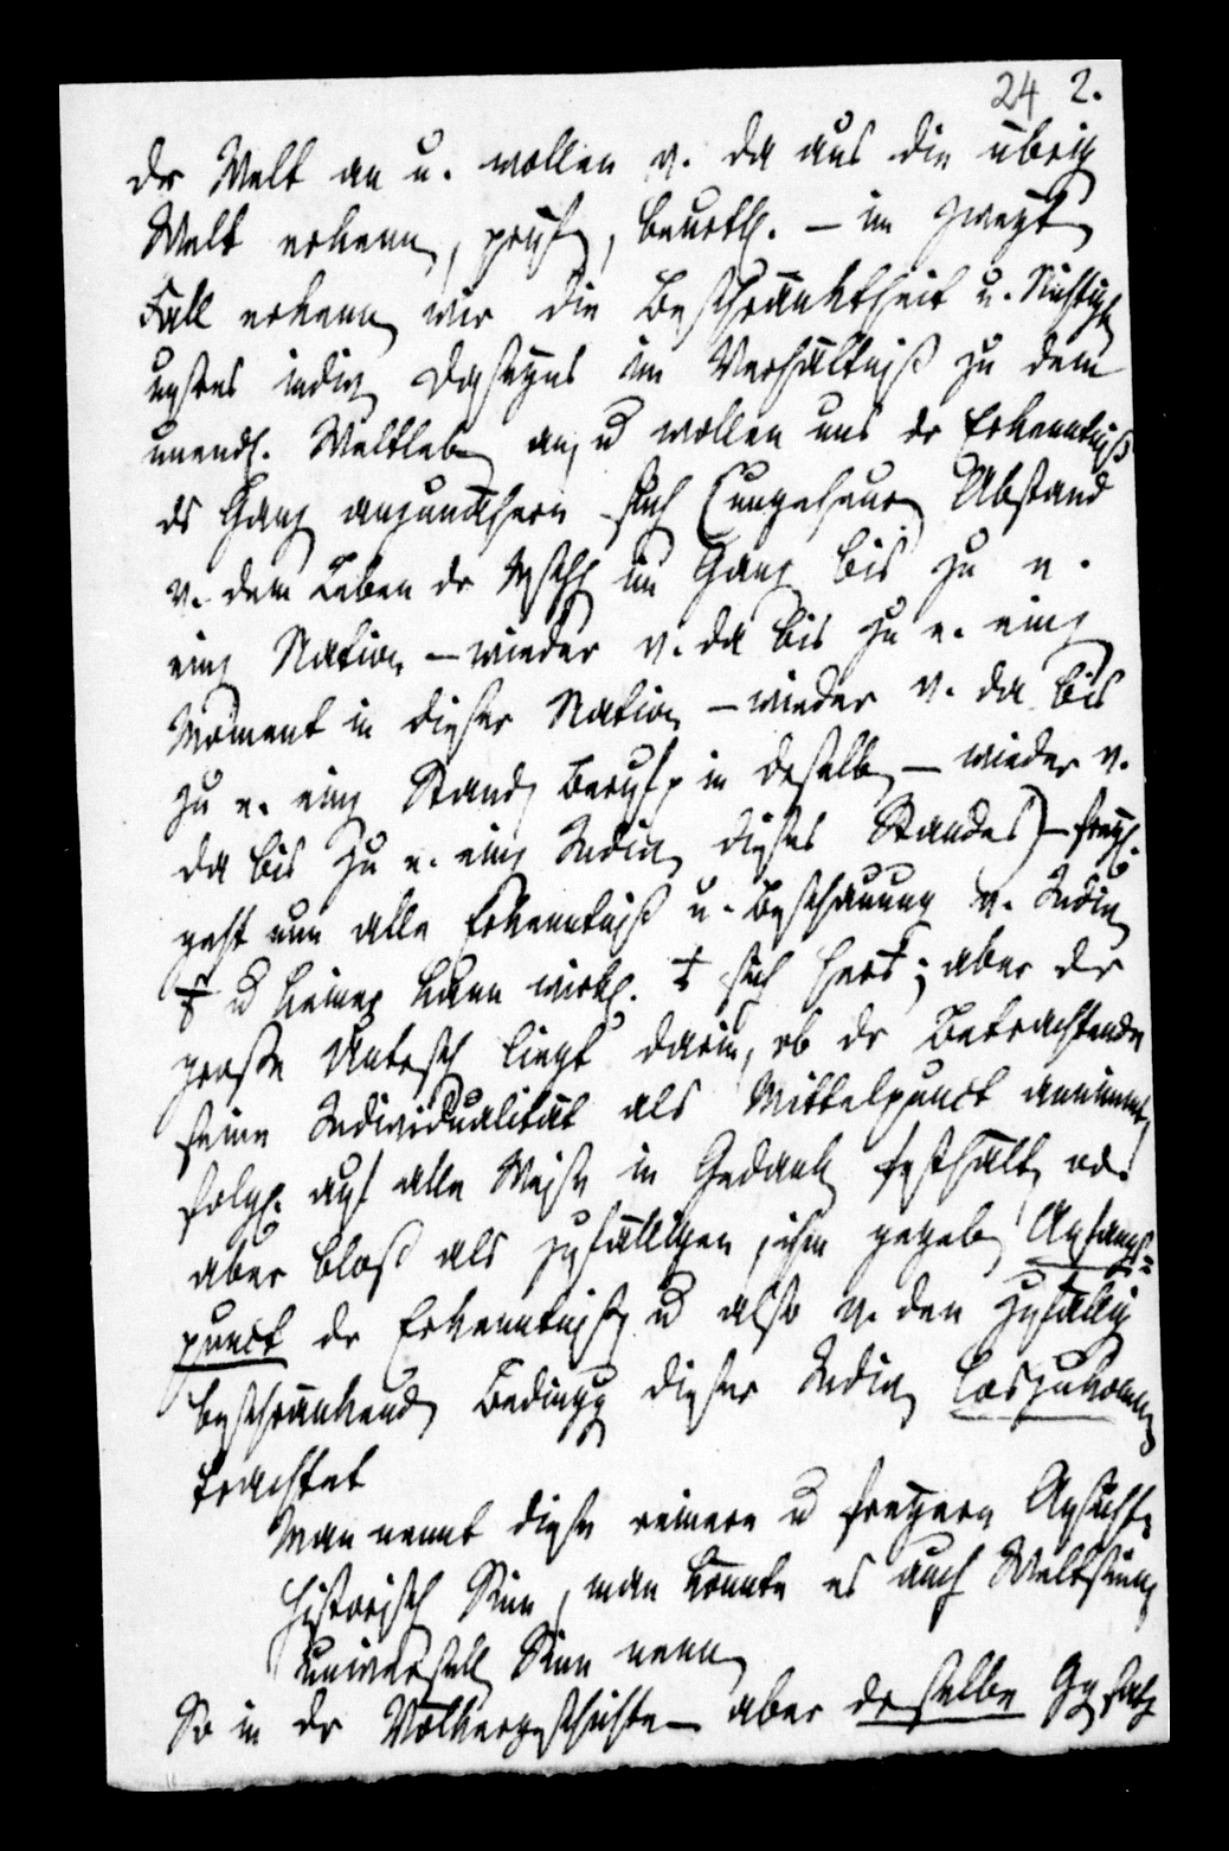 24 2.
der Welt an u. wollen v. da aus die übrig
Welt erkenn, prüf, beurthl. – im zweyt
Fall erkenn wir die Beschränktheit u. Nichtigk
unsres indiv Daseyns im Verhältniß zu dem
unendl. Weltleb an, u wollen uns der Erkenntniß
ds Ganz anzunähern such (ungeheurer Abstand
v. dem Leben der Mschh im Ganz bis zu v.
eing Nation – wieder v. da bis zu v. eing
Moment in dieser Nation – wieder v. da bis
zu v. eing Stand Beruf in desselb – wieder v.
da bis zu v. eing Indiv dieses Standes) – freyl.
geht nun alle Erkenntniß u. Beschauung v. Indiv
u keiner kann wirkl. sich ; aber der
große Untersch liegt darin, ob dr Betrachtende
seine Individualität als Mittelpunct annimmt,
folgl. auf alle Weise in Gedank festhält, od.
aber bloß als zufälligen, ihm gegeb Anfangs=
punct der Erkenntniß u also v. den zufällig
beschränkend Bedingg dieser Indiv loszukomm
trachtet
Man nennt diese reinere u freyere Ansicht
historisch Sinn, man könnte es auch Weltsinn,
universell Sinn nenn
So in der Völkergeschichte – aber derselbe Ggsatz